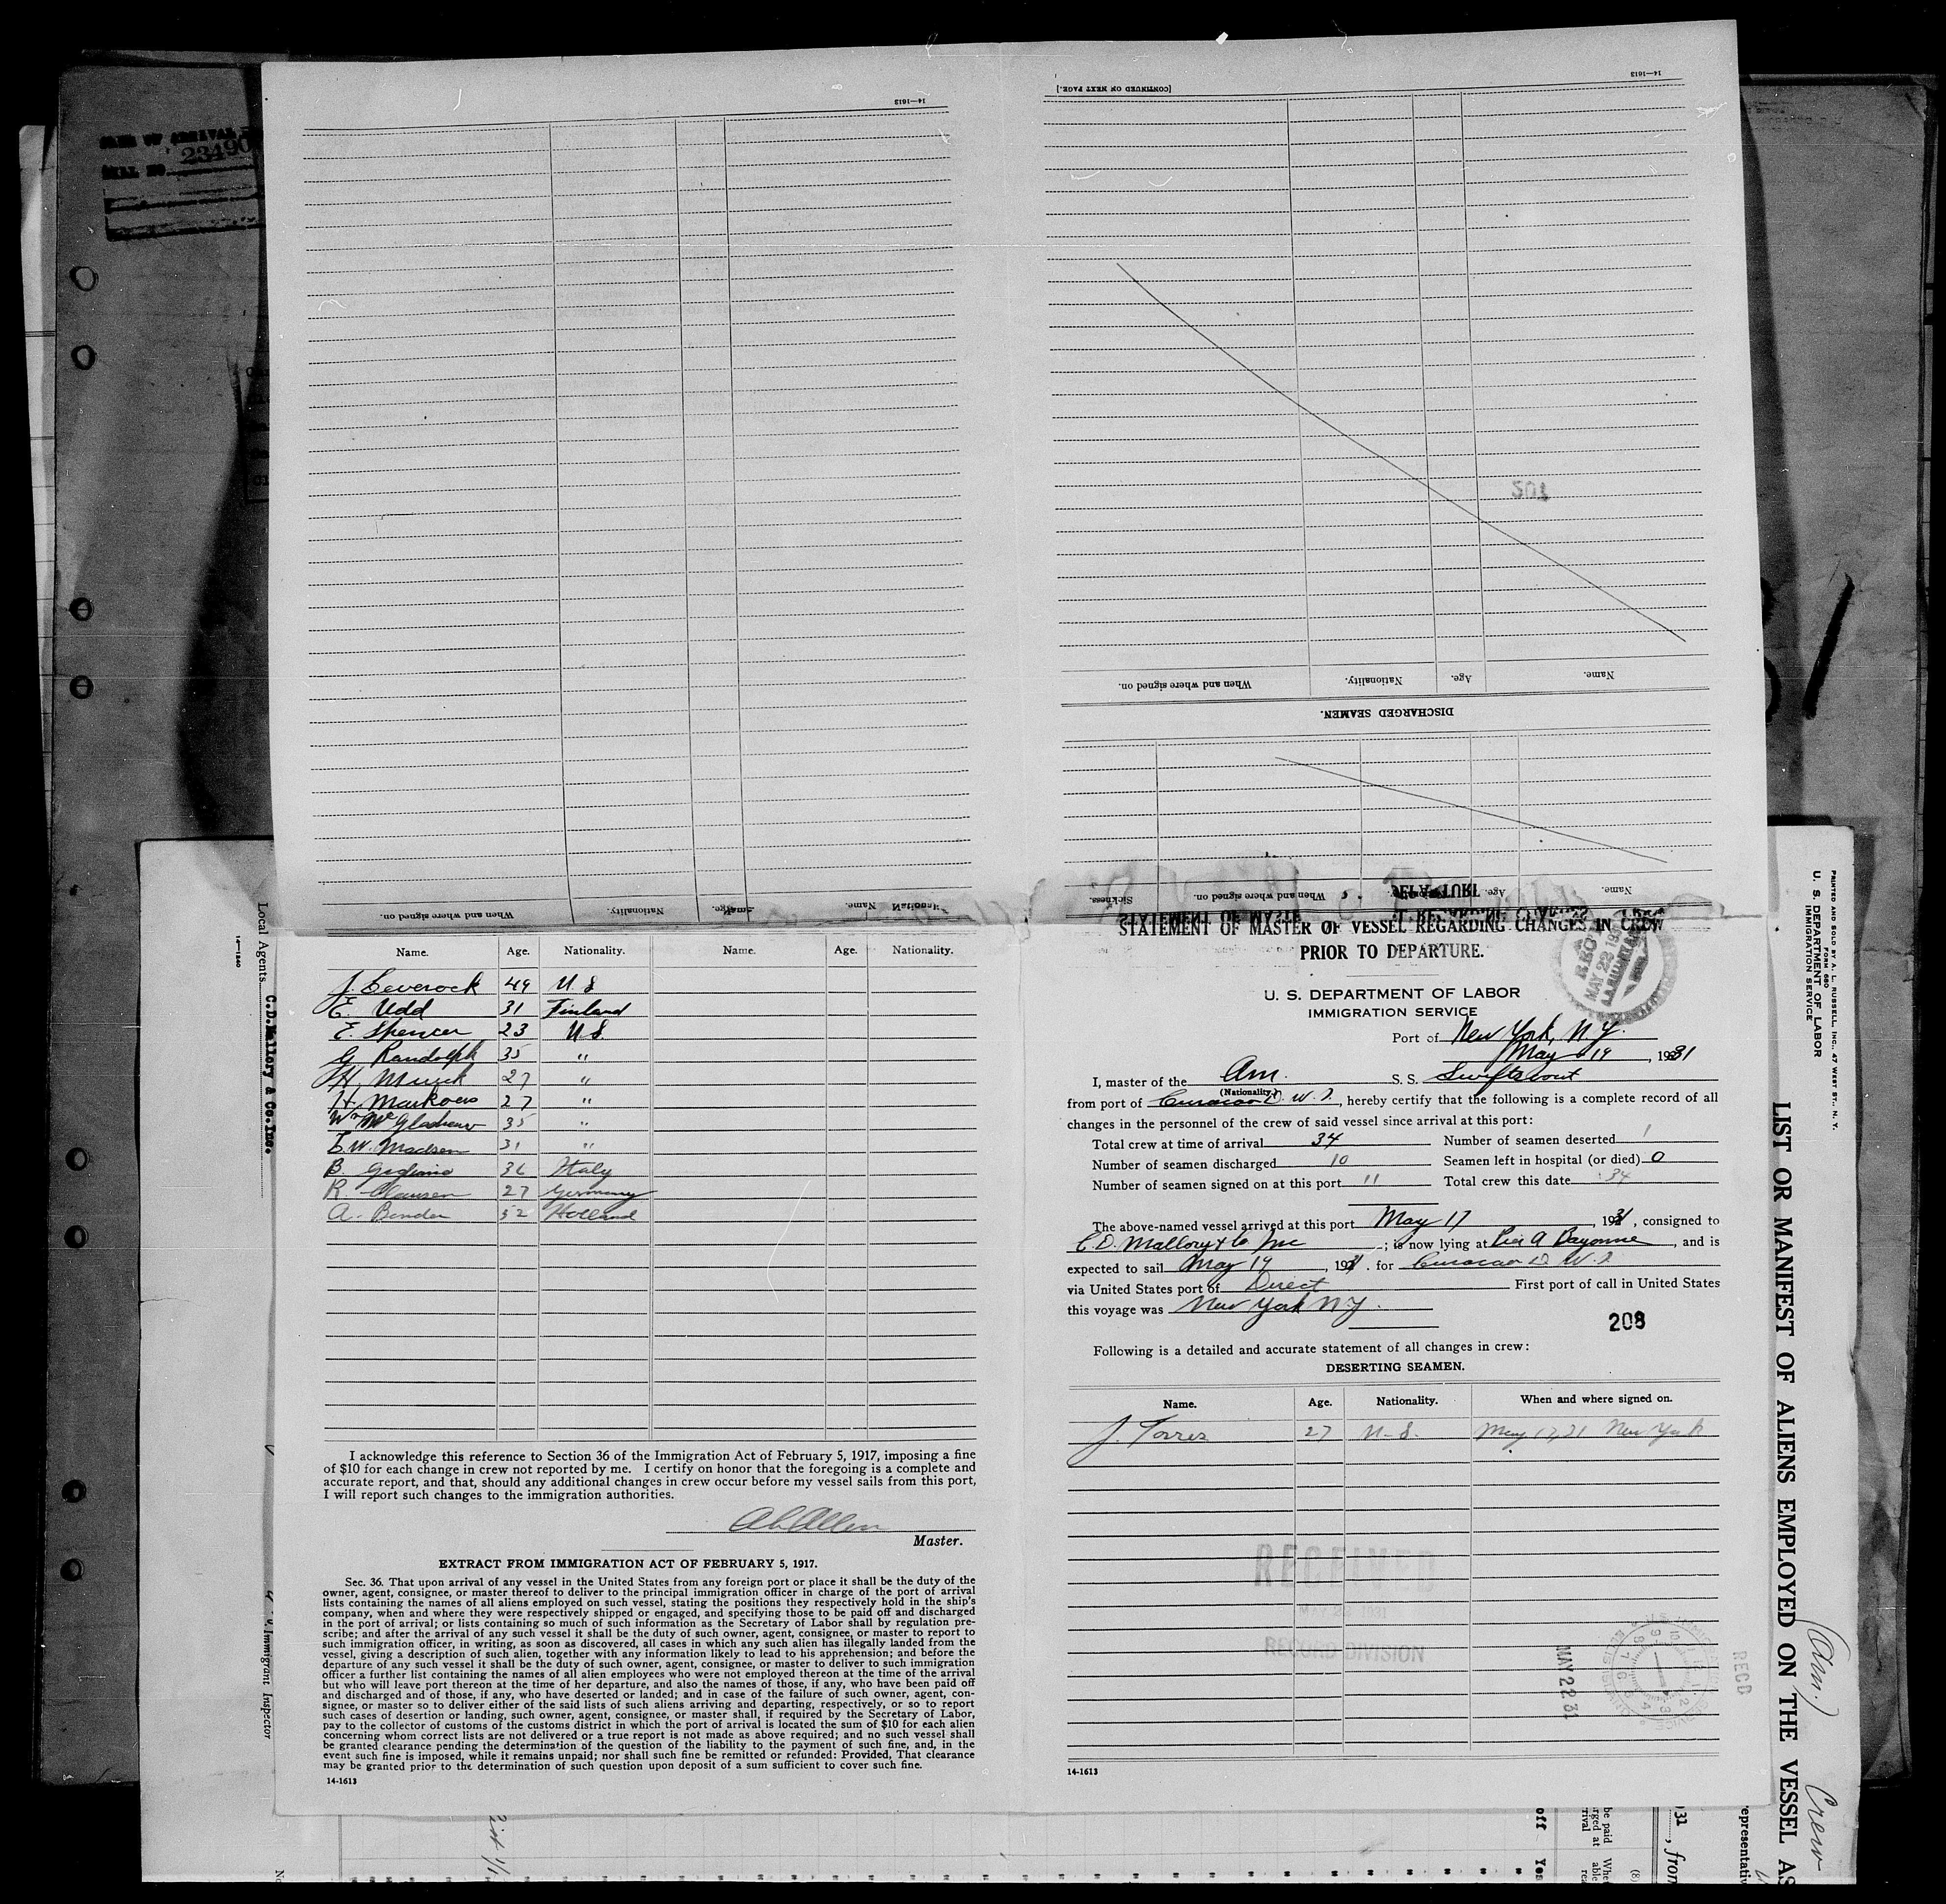 23490
14—1613
[CONTINUED ON NEXT PAGE.]
14—1613
Name. Age. Nationality. When and where signed on.
DISCHARGED SEAMEN.
Name. Age. When and where signed on. Sickness.
Name. Nationality. When and where signed on.
Name. Age. Nationality. Name. Age. Nationality.
J. Leverock 49 U. S
E. Udd 31 Finland
E. Spencer 23 U. S.
G. Randolph 35 "
H. Munk 27 "
H. Markoes 27 "
35 "
E. W. Madsen 31 "
B. Italy
R. Clausen 27 Germany
A. Bender 52 Holland
I acknowledge this reference to Section 36 of the Immigration Act of February 5, 1917, imposing a fine
of $10 for each change in crew not reported by me. I certify on honor that the foregoing is a complete and
accurate report, and that, should any additional changes in crew occur before my vessel sails from this port,
I will report such changes to the immigration authorities.
Allen
Master.
EXTRACT FROM IMMIGRATION ACT OF FEBRUARY 5, 1917.
Sec. 36. That upon arrival of any vessel in the United States from any foreign port or place it shall be the duty of the
owner, agent, consignee, or master thereof to deliver to the principal immigration officer in charge of the port of arrival
lists containing the names of all aliens employed on such vessel, stating the positions they respectively hold in the ship's
company, when and where they were respectively shipped or engaged, and specifying those to be paid off and discharged
in the port of arrival; or lists containing so much of such information as the Secretary of Labor shall by regulation pre-
scribe; and after the arrival of any such vessel it shall be the duty of such owner, agent, consignee, or master to report to
such immigration officer, in writing, as soon as discovered, all cases in which any such alien has illegally landed from the
vessel, giving a description of such alien, together with any information likely to lead to his apprehension; and before the
departure of any such vessel it shall be the duty of such owner, agent, consignee, or master to deliver to such immigration
officer a further list containing the names of all alien employees who were not employed thereon at the time of the arrival
but who will leave port thereon at the time of her departure, and also the names of those, if any, who have been paid off
and discharged and of those, if any, who have deserted or landed; and in case of the failure of such owner, agent, con-
signee, or master so to deliver either of the said lists of such aliens arriving and departing, respectively, or so to report
such cases of desertion or landing, such owner, agent, consignee, or master shall, if required by the Secretary of Labor,
pay to the collector of customs of the customs district in which the port of arrival is located the sum of $10 for each alien
concerning whom correct lists are not delivered or a true report is not made as above required; and no such vessel shall
be granted clearance pending the determination of the question of the liability to the payment of such fine, and, in the
event such fine is imposed, while it remains unpaid; nor shall such fine be remitted or refunded: Provided, That clearance
may be granted prior to the determination of such question upon deposit of a sum sufficient to cover such fine.
14-1613
STATEMENT OF MASTER OF VESSEL REGARDING CHANGES IN CREW
PRIOR TO DEPARTURE.
U. S. DEPARTMENT OF LABOR
IMMIGRATION SERVICE
REC'D MAY 22 19
Port of New York, N. Y.
May 19, 1931
I, master of the Am. S. S. Swiftscout
(Nationality)
from port of Curacao D. W. I., hereby certify that the following is a complete record of all
changes in the personnel of the crew of said vessel since arrival at this port:
Total crew at time of arrival 34 Number of seamen deserted 1
Number of seamen discharged 10 Seamen left in hospital (or died) 0
Number of seamen signed on at this port 11 Total crew this date 34
The above-named vessel arrived at this port May 17, 1931, consigned to
C. D. Mallory & Co. Inc; is now lying at Pier A Bayonne, and is
expected to sail May 19, 1931. for Curacao D. W. I.
via United States port of Direct First port of call in United States
this voyage was New York N. Y.
208
Following is a detailed and accurate statement of all changes in crew:
DESERTING SEAMEN.
Name. Age. Nationality. When and where signed on.
J. Torres 27 U. S. May 17, 31 New York
RECEIVED
MAY 22 1931
RECORD DIVISION
MAY 22 31
REC'D
14-1613
Local Agents C.D.Mallory & Co.Inc.
14—1240
Immigrant Inspector
PRINTED AND SOLD BY A. L. RUSSELL, INC., 47 WEST ST., N. Y.
FORM 680
U. S. DEPARTMENT OF LABOR
IMMIGRATION SERVICE
LIST OR MANIFEST OF ALIENS EMPLOYED ON THE VESSEL AS
(Am.) Crew
31, from
(8)
off Yes